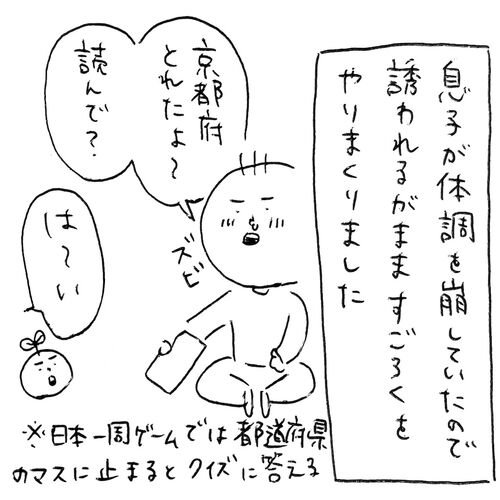 息子が体調を崩していたので
誘われるがまますごろくを
やりまくりました
京都府
とれたよ〜
読んで？
ズビ
は〜い
※日本一周ゲームでは都道府県
のマスに止まるとクイズに答える